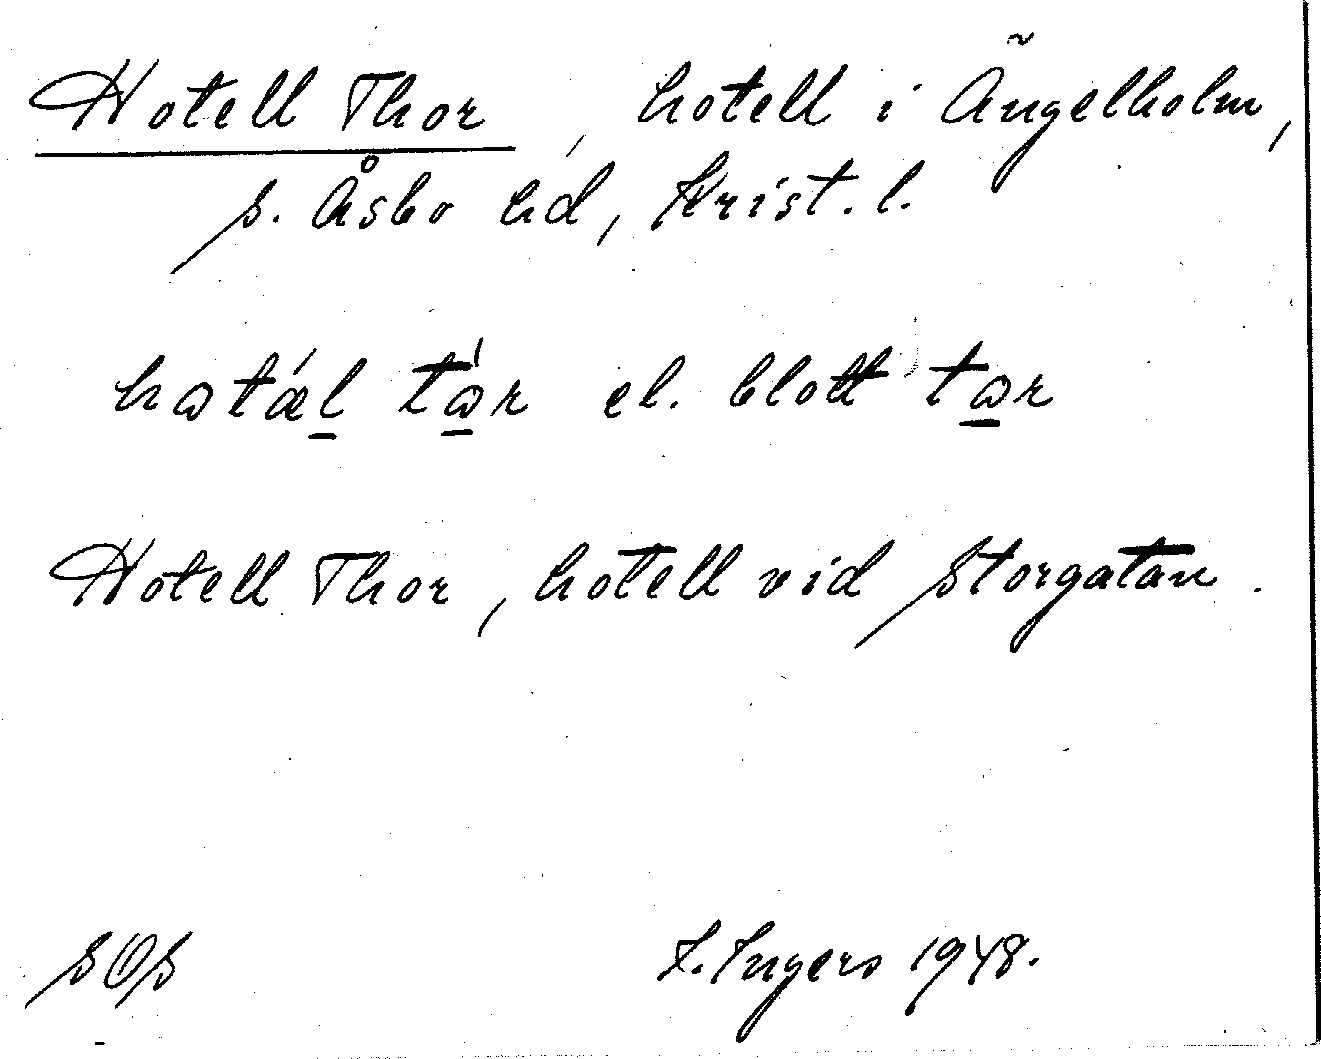 Hotell Thor, hotell i Ängelholm,
S. Åsbo hd, Krist. l.
hɷtǽl tɷ́r el. blott tɷr
Hotell Thor, hotell vid Storgatan.
SOS I. Ingers 1948.